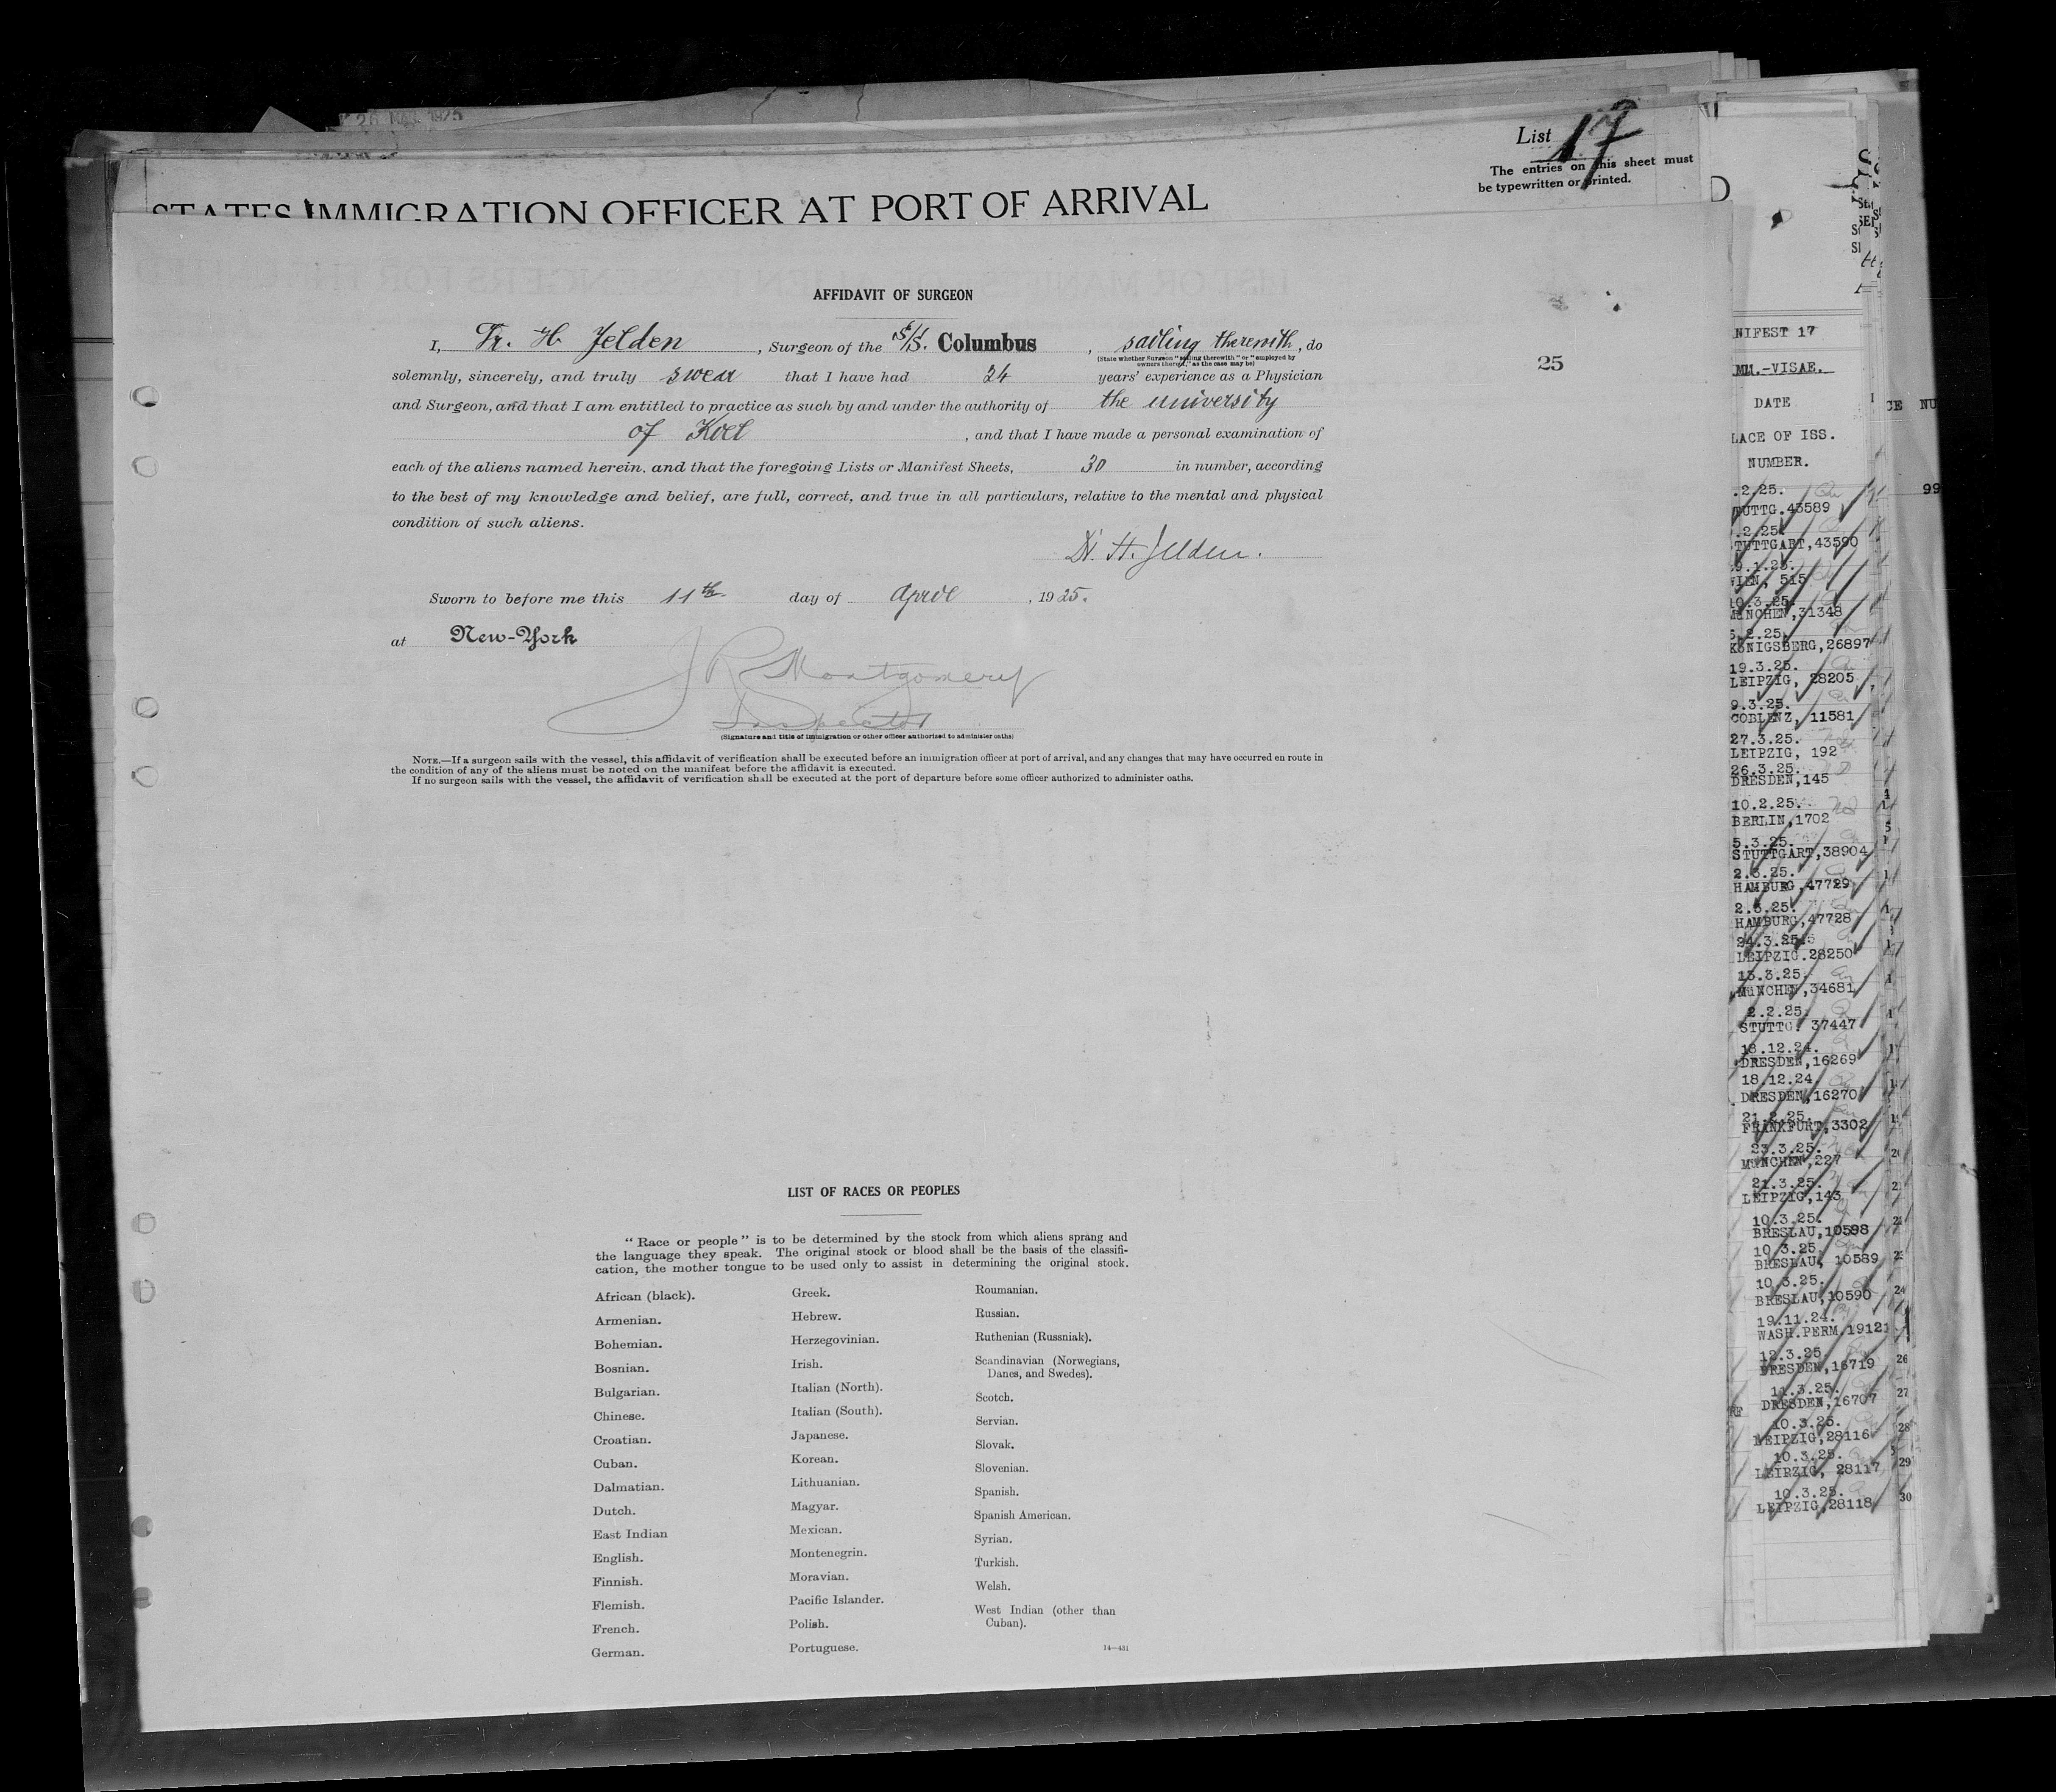 26 MAR 1925
List 17
The entries on this sheet must
be typewritten or printed.
STATES IMMIGRATION OFFICER AT PORT OF ARRIVAL
AFFIDAVIT OF SURGEON
I, Dr. H. Jelden, Surgeon of the S/S. Columbus, sailing therewith, do
(State whether Surgeon "sailing therewith" or "employed by
owners thereof," as the case may be)
solemnly, sincerely, and truly swear that I have had 24 years' experience as a Physician
25
and Surgeon, and that I am entitled to practice as such by and under the authority of the university
of Kiel, and that I have made a personal examination of
each of the aliens named herein, and that the foregoing Lists or Manifest Sheets, 30 in number, according
to the best of my knowledge and belief, are full, correct, and true in all particulars, relative to the mental and physical
condition of such aliens.
Dr. H. Jelden.
Sworn to before me this 11th day of April, 1925.
at New-York
J R Montgomery
Inspector
(Signature and title of immigration or other officer authorized to administer oaths)
NOTE.—If a surgeon sails with the vessel, this affidavit of verification shall be executed before an immigration officer at port of arrival, and any changes that may have occurred en route in
the condition of any of the aliens must be noted on the manifest before the affidavit is executed.
If no surgeon sails with the vessel, the affidavit of verification shall be executed at the port of departure before some officer authorized to administer oaths.
LIST OF RACES OR PEOPLES
"Race or people" is to be determined by the stock from which aliens sprang and
the language they speak. The original stock or blood shall be the basis of the classifi-
cation, the mother tongue to be used only to assist in determining the original stock.
African (black).
Armenian.
Bohemian.
Bosnian.
Bulgarian.
Chinese.
Croatian.
Cuban.
Dalmatian.
Dutch.
East Indian
English.
Finnish.
Flemish.
French.
German.
Greek.
Hebrew.
Herzegovinian.
Irish.
Italian (North).
Italian (South).
Japanese.
Korean.
Lithuanian.
Magyar.
Mexican.
Montenegrin.
Moravian.
Pacific Islander.
Polish.
Portuguese.
Roumanian.
Russian.
Ruthenian (Russniak).
Scandinavian (Norwegians,
Danes, and Swedes).
Scotch.
Servian.
Slovak.
Slovenian.
Spanish.
Spanish American.
Syrian.
Turkish.
Welsh.
West Indian (other than
Cuban).
14—431
NIFEST 17
MM.-VISAE.
DATE
LACE OF ISS.
NUMBER.
.2.25.
TUTTG.43589
.2.25.
TUTTGART,43590
9.1.25.
WIEN, 515
10.3.25.
MÜNCHEN,31348
.2.25.
KÖNIGSBERG,26897
19.3.25.
LEIPZIG, 28205
9.3.25.
COBLENZ, 11581
27.3.25.
LEIPZIG, 192
26.3.25.
DRESDEN,145
10.2.25.
BERLIN,1702
5.3.25.
STUTTGART,38904
2.3.25.
HAMBURG,47729
2.3.25.
HAMBURG,47728
24.3.25
LEIPZIG.28250
13.3.25.
MÜNCHEN,34681
2.2.25.
STUTTG. 37447
18.12.24.
DRESDEN,16269
18.12.24.
DRESDEN,16270
21.2.25.
FRANKFURT,3302
23.3.25.
MÜNCHEN,227
21.3.25.
LEIPZIG,143
10.3.25.
BRESLAU,10598
10.3.25.
BRESLAU, 10589
10.3.25.
BRESLAU,10590
19.11.24.
WASH.PERM.19121
12.3.25.
DRESDEN,16719
26
11.3.25.
DRESDEN,16707
27
10.3.25.
LEIPZIG,28116
28
10.3.25.
LEIPZIG, 28117
29
10.3.25.
LEIPZIG,28118
30
CE NU
99